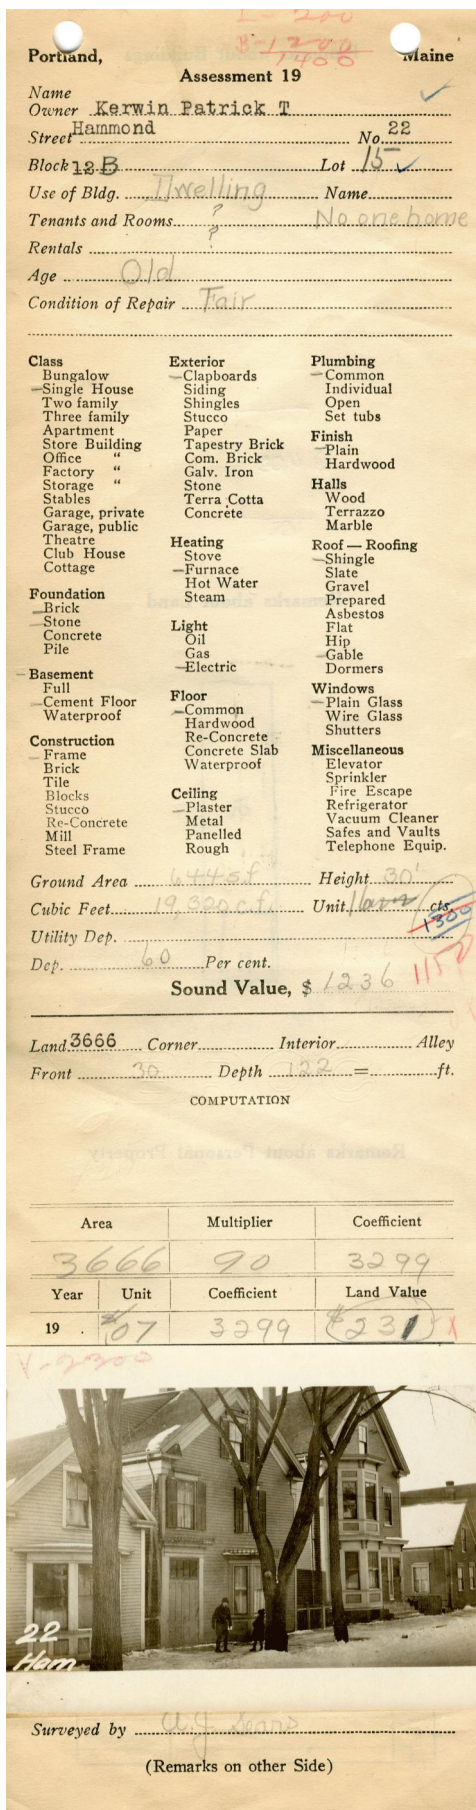 L- 200
B-1200
1400
Portland, Maine
Assessment 19
Name
Owner Kerwin Patrick T
Street Hammond No. 22
Block 12 B Lot 15
Use of Bldg. Dwelling Name
Tenants and Rooms ? No one home
Rentals ?
Age Old
Condition of Repair Fair
Class
Bungalow
Single House
Two family
Three family
Apartment
Store Building
Office "
Factory "
Storage "
Stables
Garage, private
Garage, public
Theatre
Club House
Cottage
Foundation
Brick
Stone
Concrete
Pile
Basement
Full
Cement Floor
Waterproof
Construction
Frame
Brick
Tile
Blocks
Stucco
Re-Concrete
Mill
Steel Frame
Exterior
Clapboards
Siding
Shingles
Stucco
Paper
Tapestry Brick
Com. Brick
Galv. Iron
Stone
Terra Cotta
Concrete
Heating
Stove
Furnace
Hot Water
Steam
Light
Oil
Gas
Electric
Floor
Common
Hardwood
Re-Concrete
Concrete Slab
Waterproof
Ceiling
Plaster
Metal
Panelled
Rough
Plumbing
Common
Individual
Open
Set tubs
Finish
Plain
Hardwood
Halls
Wood
Terrazzo
Marble
Roof — Roofing
Shingle
Slate
Gravel
Prepared
Asbestos
Flat
Hip
Gable
Dormers
Windows
Plain Glass
Wire Glass
Shutters
Miscellaneous
Elevator
Sprinkler
Fire Escape
Refrigerator
Vacuum Cleaner
Safes and Vaults
Telephone Equip.
Ground Area 644 s.f. Height 30'
Cubic Feet 19,320 c.f. Unit cts.
1300
Utility Dep.
Dep. 60 Per cent.
1150
Sound Value, $ 1236
Land 3666 Corner Interior Alley
Front 30 Depth 122 = ft.
COMPUTATION
Area Multiplier Coefficient
3666 90 3299
Year Unit Coefficient Land Value
19 .07 3299 $231 X
22
Ham
Surveyed by A.J. Sears
(Remarks on other Side)